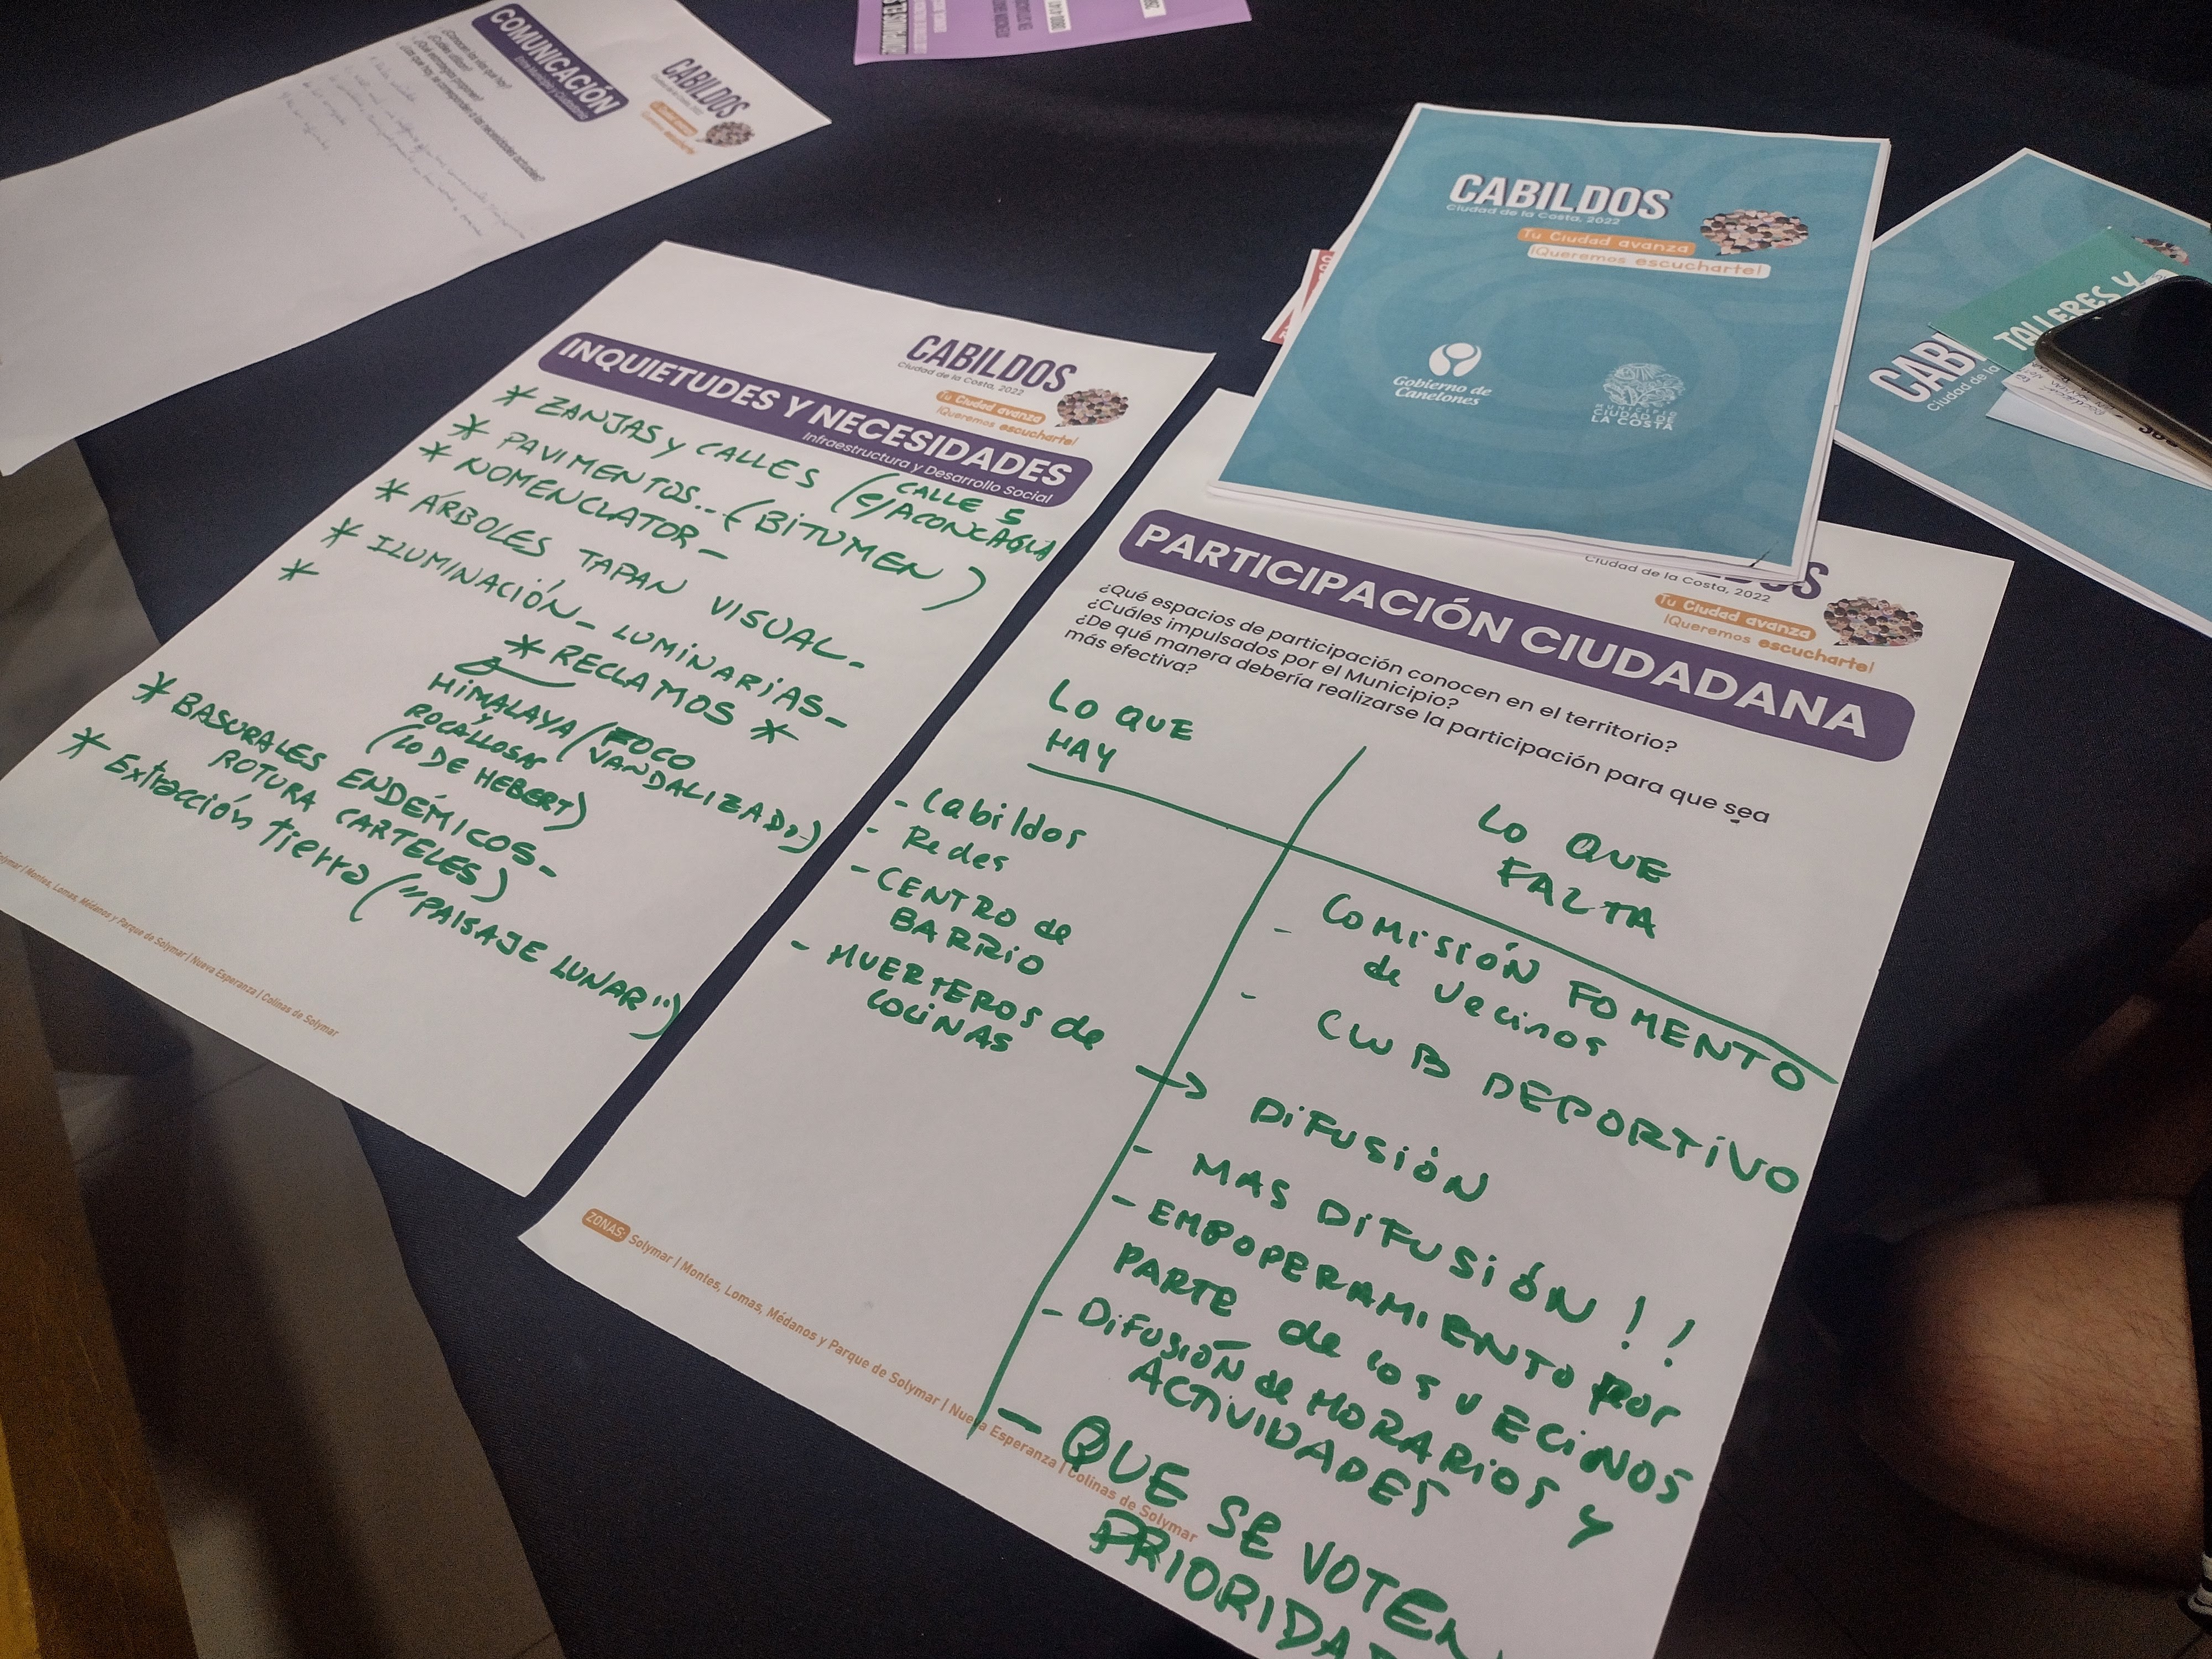 COMUNICACIÓN
Entre Municipio y Ciudadanía
¿Conocen las vías que hay?
¿Cuáles utilizan?
¿Qué estrategias proponen?
¿Las que hay, se corresponden a las necesidades actuales?
CABILDOS
Ciudad de la Costa, 2022
Tu Ciudad avanza
¡Queremos escucharte!
CABILDOS
Ciudad de la Costa, 2022
Tu Ciudad avanza
¡Queremos escucharte!
Gobierno de
Canelones
MUNICIPIO
CIUDAD DE
LA COSTA
TALLERES Y
CABI
Ciudad de la
CABILDOS
Ciudad de la Costa, 2022
Tu Ciudad avanza
¡Queremos escucharte!
INQUIETUDES Y NECESIDADES
Infraestructura y Desarrollo Social
* ZANJAS y CALLES (CALLE 5
e/ACONCAGUA
* PAVIMENTOS... (BITUMEN)
* NOMENCLATOR -
* ÁRBOLES TAPAN VISUAL -
* ILUMINACIÓN - LUMINARIAS -
*
* RECLAMOS *
HIMALAYA (FOCO
y VANDALIZADO)
ROCALLOSAS
(LO DE HEBERT)
* BASURALES ENDÉMICOS -
ROTURA CARTELES)
* Extracción tierra ("PAISAJE LUNAR")
Solymar | Montes, Lomas, Médanos y Parque de Solymar | Nueva Esperanza | Colinas de Solymar
DOS
Ciudad de la Costa, 2022
Tu Ciudad avanza
¡Queremos escucharte!
PARTICIPACIÓN CIUDADANA
¿Qué espacios de participación conocen en el territorio?
¿Cuáles impulsados por el Municipio?
¿De qué manera debería realizarse la participación para que sea
más efectiva?
LO QUE
HAY
- Cabildos
- Redes
- CENTRO de
BARRIO
- HUERTEROS de
COLINAS
LO QUE
FALTA
- COMISIÓN FOMENTO
de vecinos
- CLUB DEPORTIVO
→ DIFUSIÓN
- MAS DIFUSIÓN !!
- EMPOPERAMIENTO POR
PARTE de los VECINOS
- DIFUSIÓN de HORARIOS y
ACTIVIDADES
- QUE SE VOTEN
PRIORIDA
ZONAS: Solymar | Montes, Lomas, Médanos y Parque de Solymar | Nueva Esperanza | Colinas de Solymar